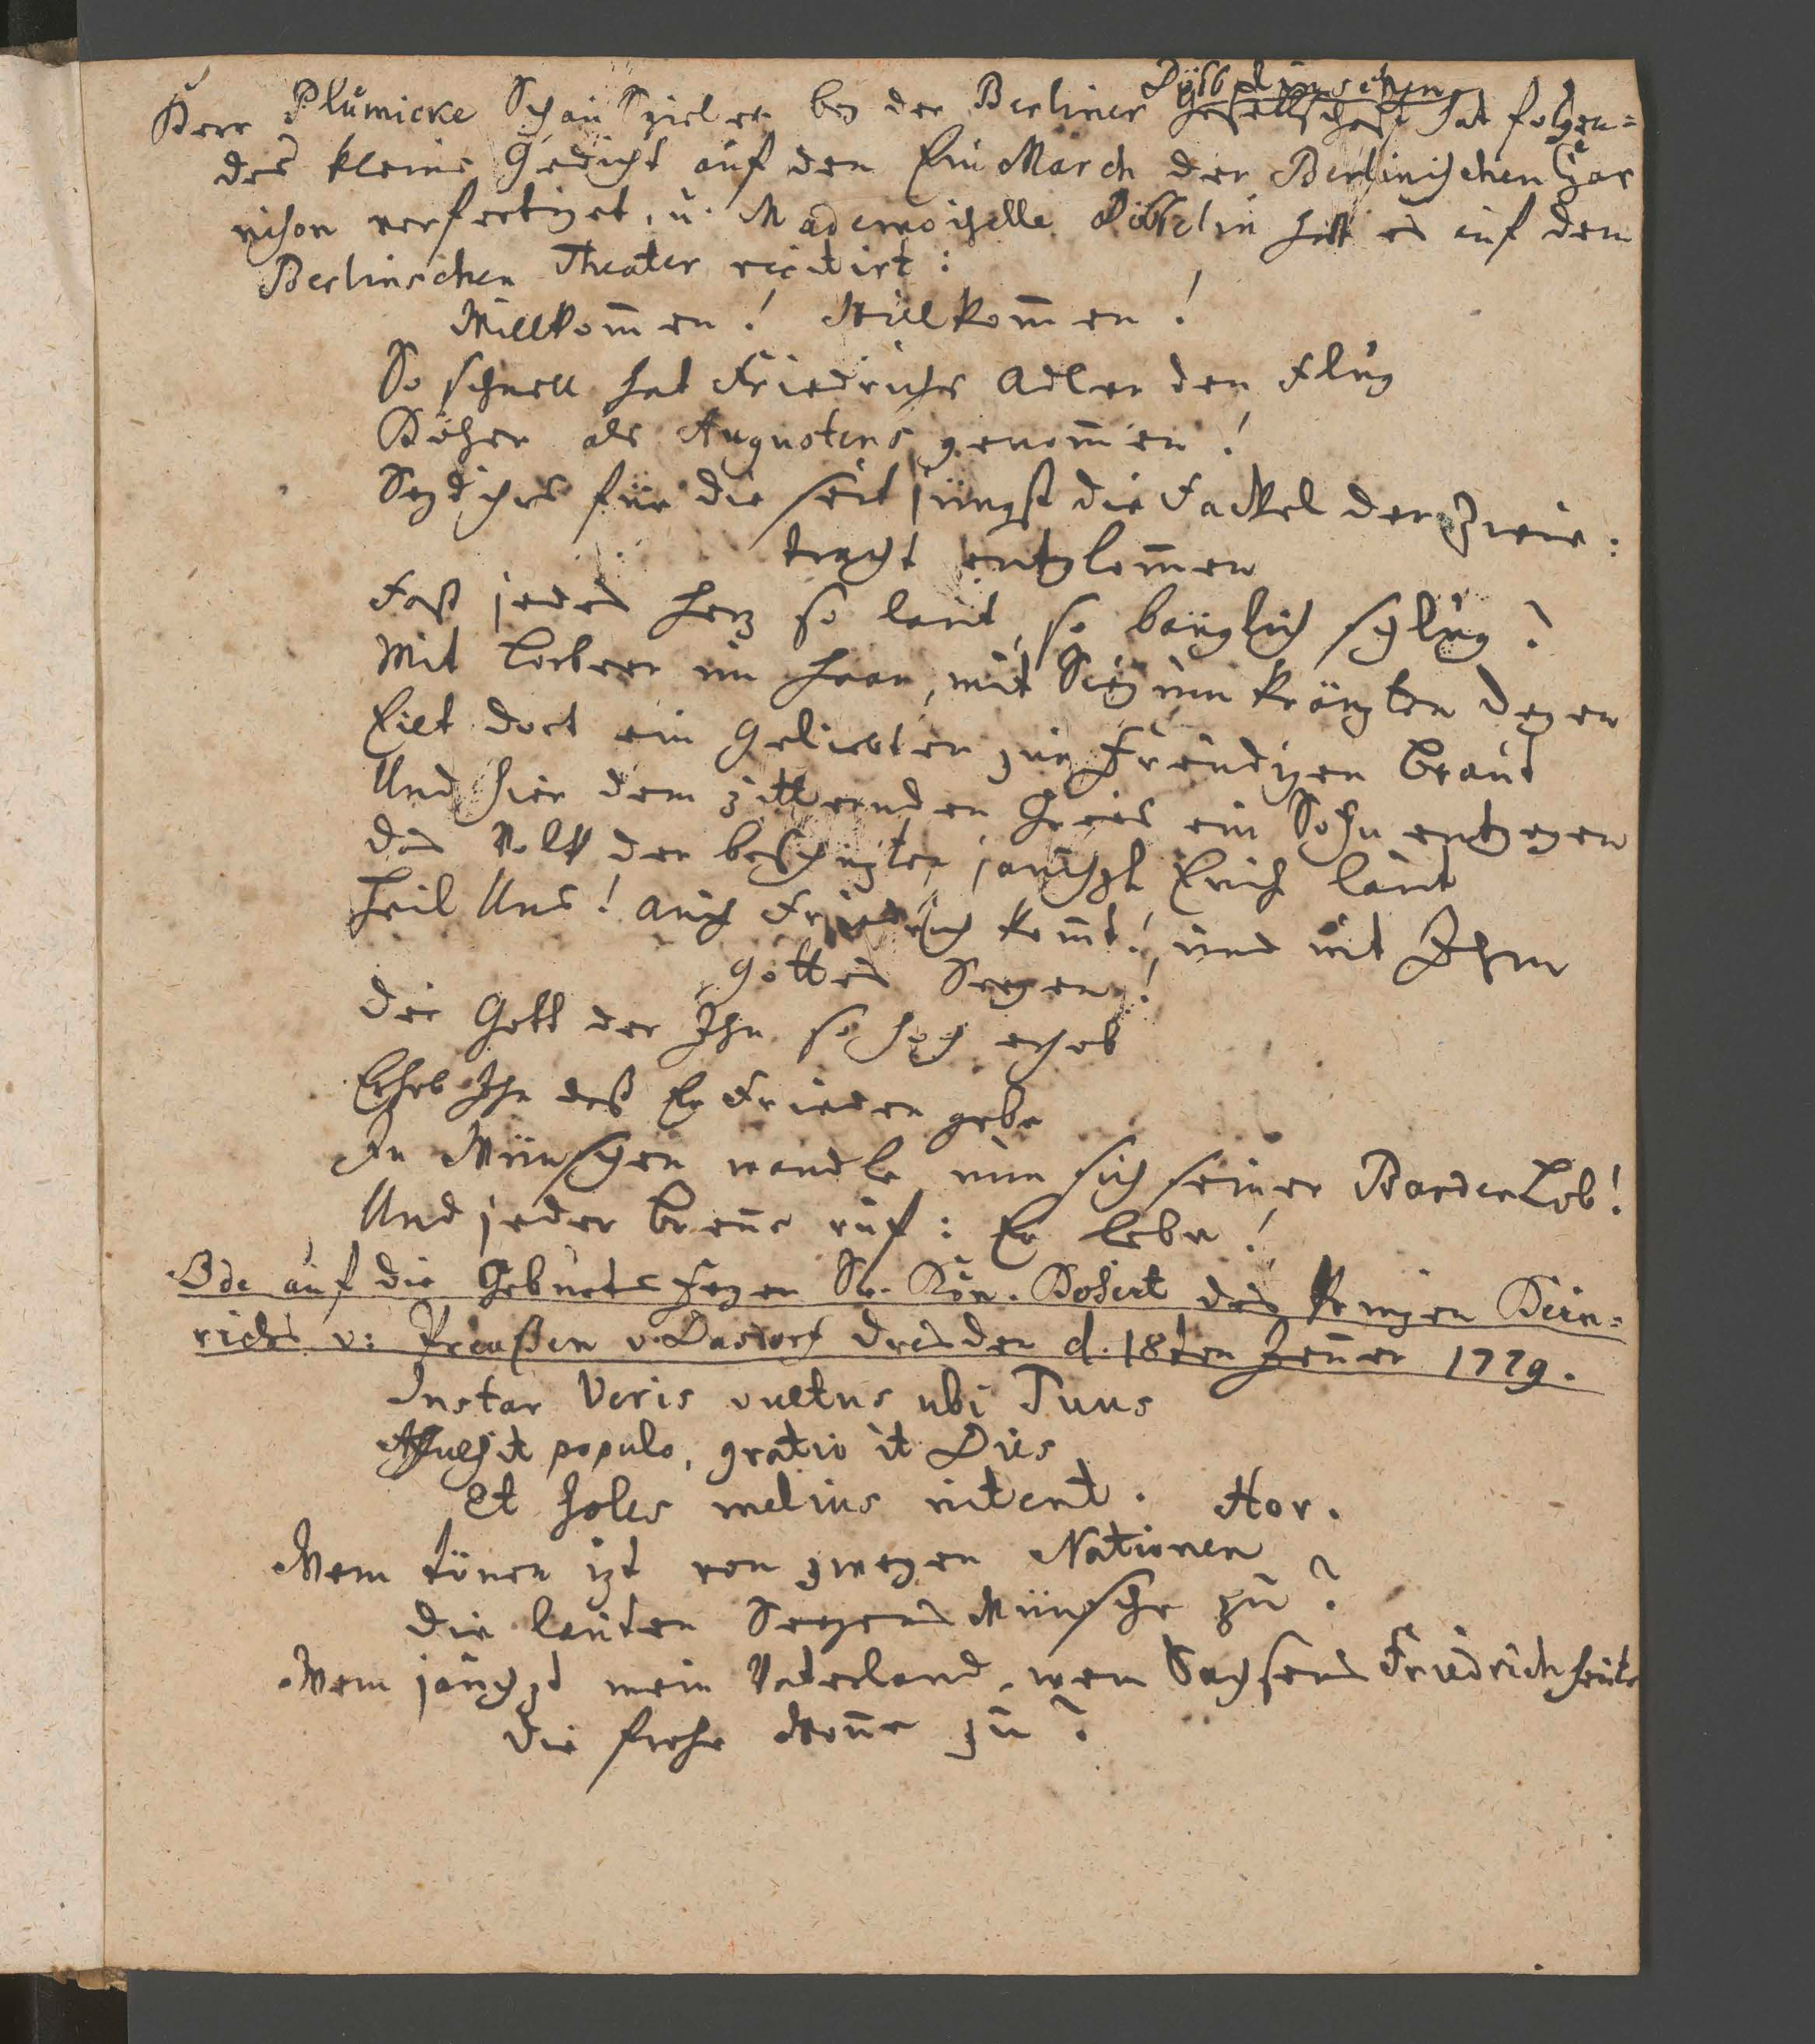 Döbbelinschen
Herr Plümicke Schau Spieler bey der Berliner Gesellschaft hat folgen=
des kleine Gedicht auf den Ein March der Berlinischen Gar
nison verfertiget, u. Mademoiselle Döbbelin hatt es auf dem
Berlinschen Theater recitirt:
Willkom̅en! Willkom̅en!
So schnell hat Friedrichs Adler den Flug
Höher als Augustens genom̅en!
Seyd ihrs für die seit jüngst die Fackel der Zwie:
tracht entglom̅en
Fast jedes Herz so laut, so bänglich schlug?
Mit Lorbeer im Haar, mit Sieg umkränzten Degen
Eilt dort ein Geliebter zur Freudigen Braut
Und hier dem zitternden Greis ein Sohn entgegen
das Volk der beschützten jauchzt Euch laut
Heil Uns! auch Friedrich kom̅t! und mit Ihm
Gottes Seegen!
Der Gott der Ihn so hoch erhob
Erhob Ihn daß Er Frieden gebe
In Wünschen wandle nun sich seiner Barden Lob!
Und jeder Bren̅e ruf: Er lebe!
Ode auf die Geburts Feyer Sr. Kön. Hoheit des Prinzen Hein=
richs v: Preußen v. Dasdorf Dresden d. 18ten Jen̅er 1779.
Instar Veris vultus ubi Tuus
Affulsit populo, gratio it Dies
Et soles melius nitent. Hor.
Wem tönen izt von zweyen Nationen
die lauten Seegens Wünsche zu?
Wem jauchzt mein Vaterland, wem Sachsens Friedrich heute
die frohe Won̅e zu?